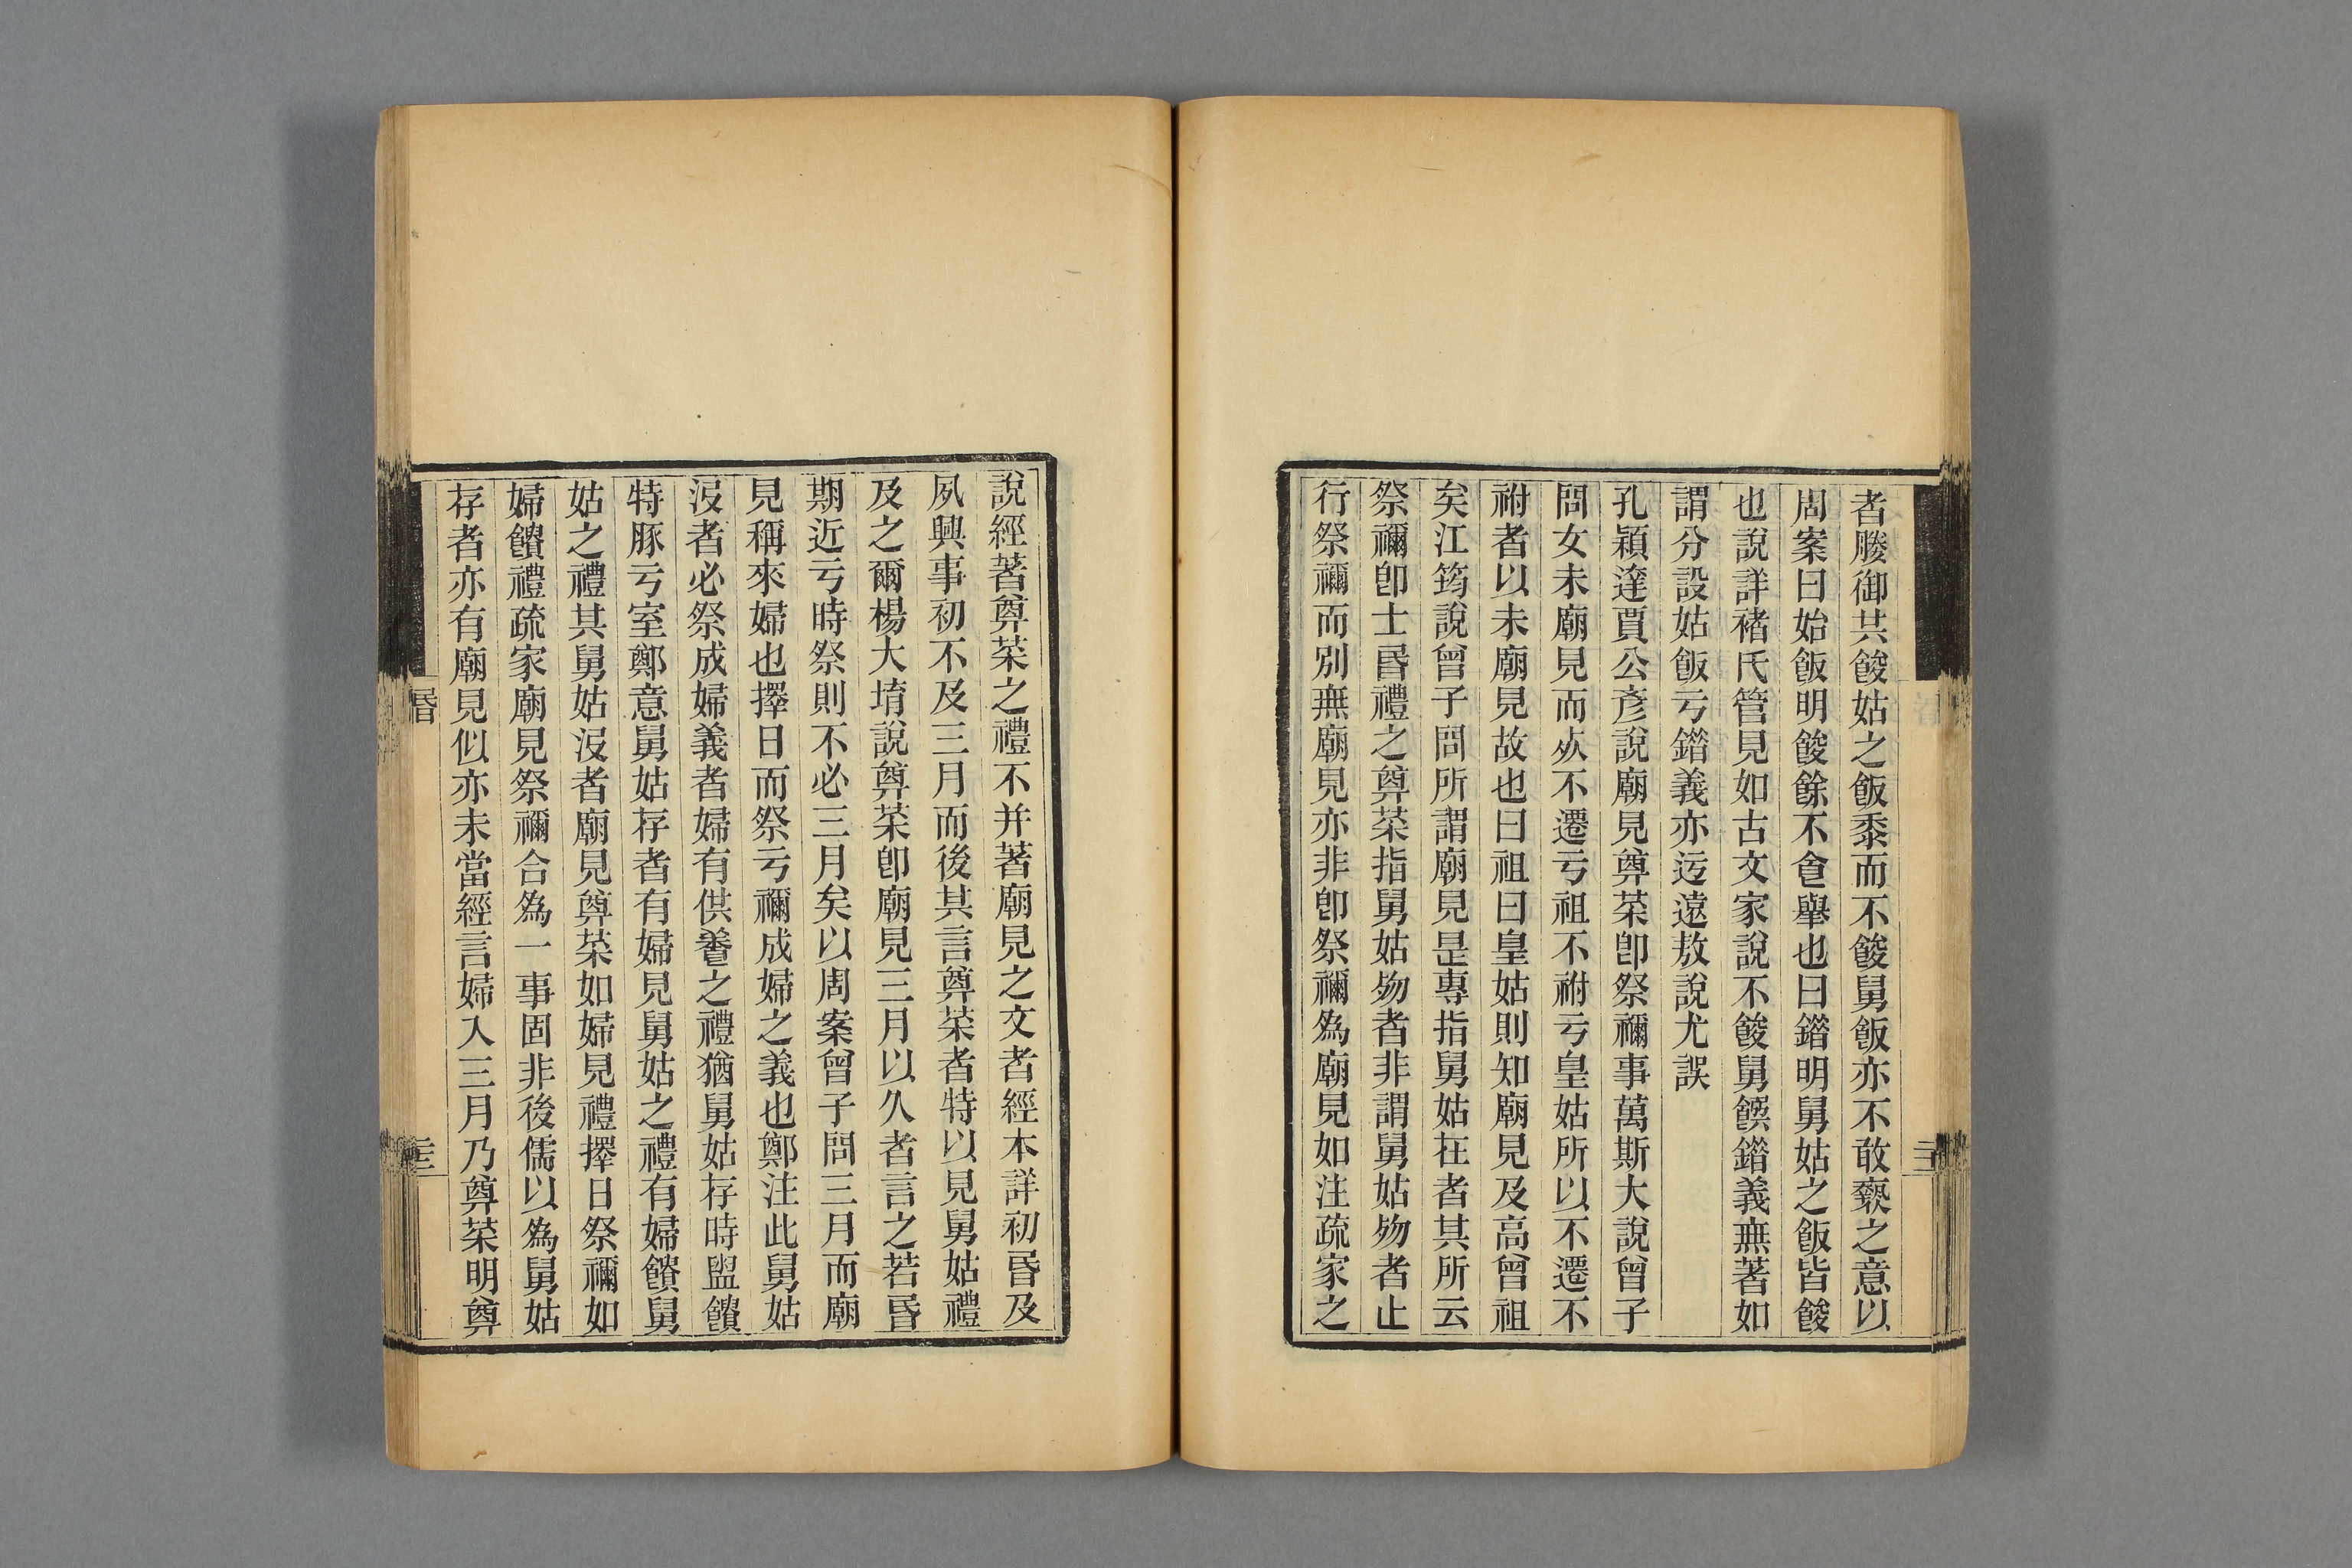 者媵御共餕姑之飯黍而不餕舅飯亦不敢褻之意以
周案曰始飯明餕餘不倉舉也曰錯明舅姑之飯皆餕
也說詳褚氏管見如古文家說不餕舅饌錯義無著如
謂分設姑飯亏錯義亦迃遠敖說尤誤
孔穎達賈公彥說廟見奠菜卽祭禰事萬斯大說曾子
問女未廟見而㱙不遷亏祖不祔亏皇姑所以不遷不
祔者以未廟見故也曰祖曰皇姑則知廟見及高曾祖
矣江筠說曾子問所謂廟見是專指舅姑在者其所云
祭禰卽士昬禮之奠菜指舅姑歾者非謂舅姑歾者止
行祭禰而別無廟見亦非卽祭禰爲廟見如注疏家之
說經著奠菜之禮不并著廟見之文者經本詳初昬及
夙興事初不及三月而後其言奠菜者特以見舅姑禮
及之爾楊大堉說奠菜卽廟見三月以久者言之若昬
期近亏時祭則不必三月矣以周案曾子問三月而廟
見稱來婦也擇日而祭亏禰成婦之義也鄭注此舅姑
沒者必祭成婦義者婦有供養之禮猶舅姑存時盥饋
特豚亏室鄭意舅姑存者有婦見舅姑之禮有婦饋舅
姑之禮其舅姑沒者廟見奠菜如婦見禮擇日祭禰如
婦饋禮疏家廟見祭禰合爲一事固非後儒以爲舅姑
存者亦有廟見似亦未當經言婦入三月乃奠菜明奠
昬